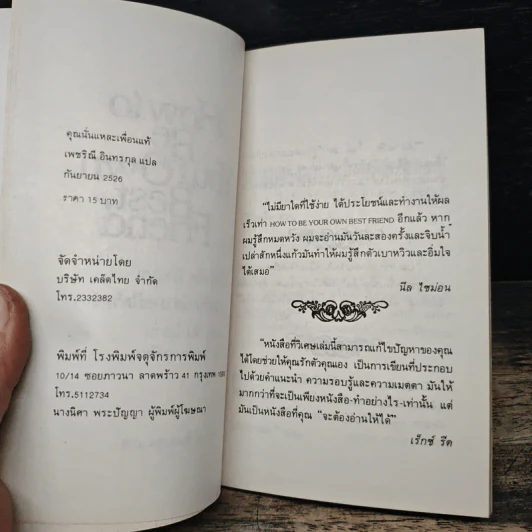 คุณนั่นแหละเพื่อนแท้
เพชริณี อินทรกุล แปล
กันยายน 2526
ราคา 15 บาท
จัดจำหน่ายโดย
บริษัท เคล็ดไทย จำกัด
โทร.2332382
พิมพ์ที่ โรงพิมพ์จตุจักรการพิมพ์
10/14 ซอยภาวนา ลาดพร้าว 41 กรุงเทพ
โทร.5112734
นางนิศา พระปัญญา ผู้พิมพ์ผู้โฆษณา
"ไม่มียาใดที่ใช้ง่าย ได้ประโยชน์และทำงานให้ผล
เร็วเท่า HOW TO BE YOUR OWN BEST FRIEND อีกแล้ว หาก
ผมรู้สึกหมดหวัง ผมจะอ่านมันวันละสองครั้งและจิบน้ำ
เปล่าสักหนึ่งแก้วมันทำให้ผมรู้สึกตัวเบาหวิวและอิ่มใจ
ได้เสมอ"
นีล ไซม่อน
"หนังสือที่วิเศษเล่มนี้สามารถแก้ไขปัญหาของคุณ
ได้โดยช่วยให้คุณรักตัวคุณเอง เป็นการเขียนที่ประกอบ
ไปด้วยคำแนะนำ ความรอบรู้และความเมตตา มันให้
มากกว่าที่จะเป็นเพียงหนังสือ-ทำอย่างไร-เท่านั้น แต่
มันเป็นหนังสือที่คุณ "จะต้องอ่านให้ได้"
เร็กซ์ รีด